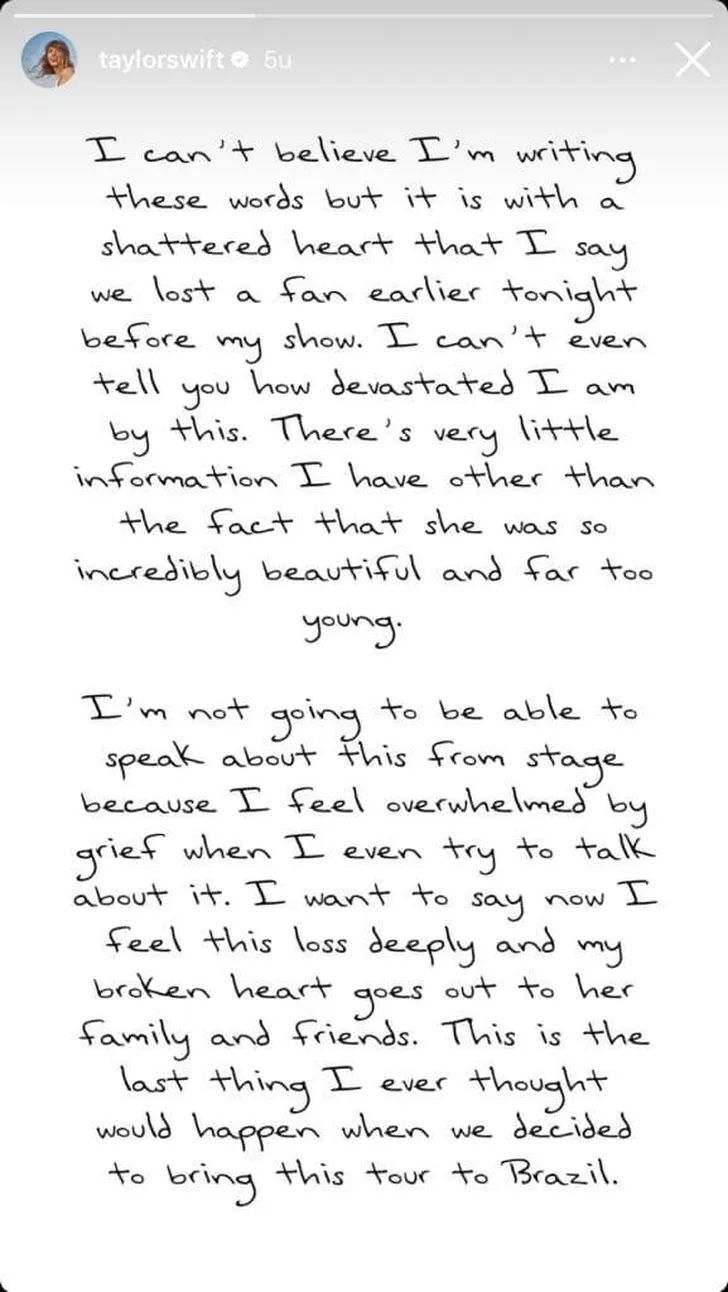 taylorswift 5u
I can't believe I'm writing
these words but it is with a
shattered heart that I say
we lost a fan earlier tonight
before my show. I can't even
tell you how devastated I am
by this. There's very little
information I have other than
the fact that she was so
incredibly beautiful and far too
young.
I'm not going to be able to
speak about this from stage
because I feel overwhelmed by
grief when I even try to talk
about it. I want to say now I
feel this loss deeply and my
broken heart goes out to her
family and friends. This is the
last thing I ever thought
would happen when we decided
to bring this tour to Brazil.